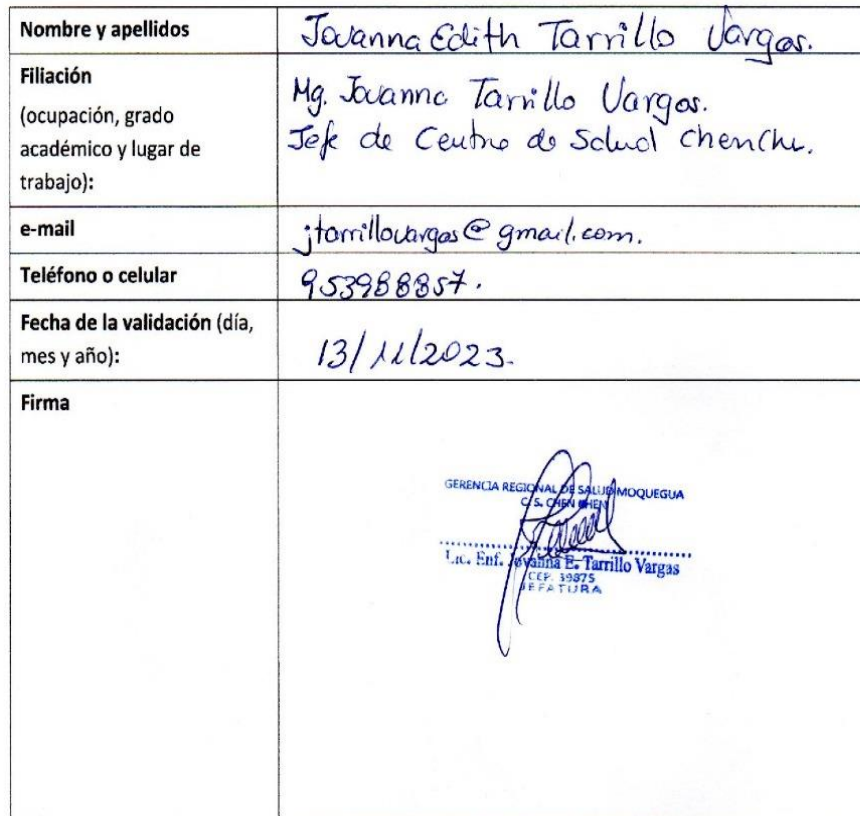 Nombre y apellidos
Jovanna Edith Tarrillo Vargas.
Filiación
(ocupación, grado
académico y lugar de
trabajo):
Mg. Jovanna Tarrillo Vargas.
Jefe de Centro de Salud Chenchen.
e-mail
jtarrillovargas@gmail.com.
Teléfono o celular
953988857.
Fecha de la validación (día,
mes y año):
13/11/2023.
Firma
GERENCIA REGIONAL DE SALUD MOQUEGUA
C. S. CHEN CHEN
Lic. Enf. Jovanna E. Tarrillo Vargas
CEP. 39875
JEFATURA